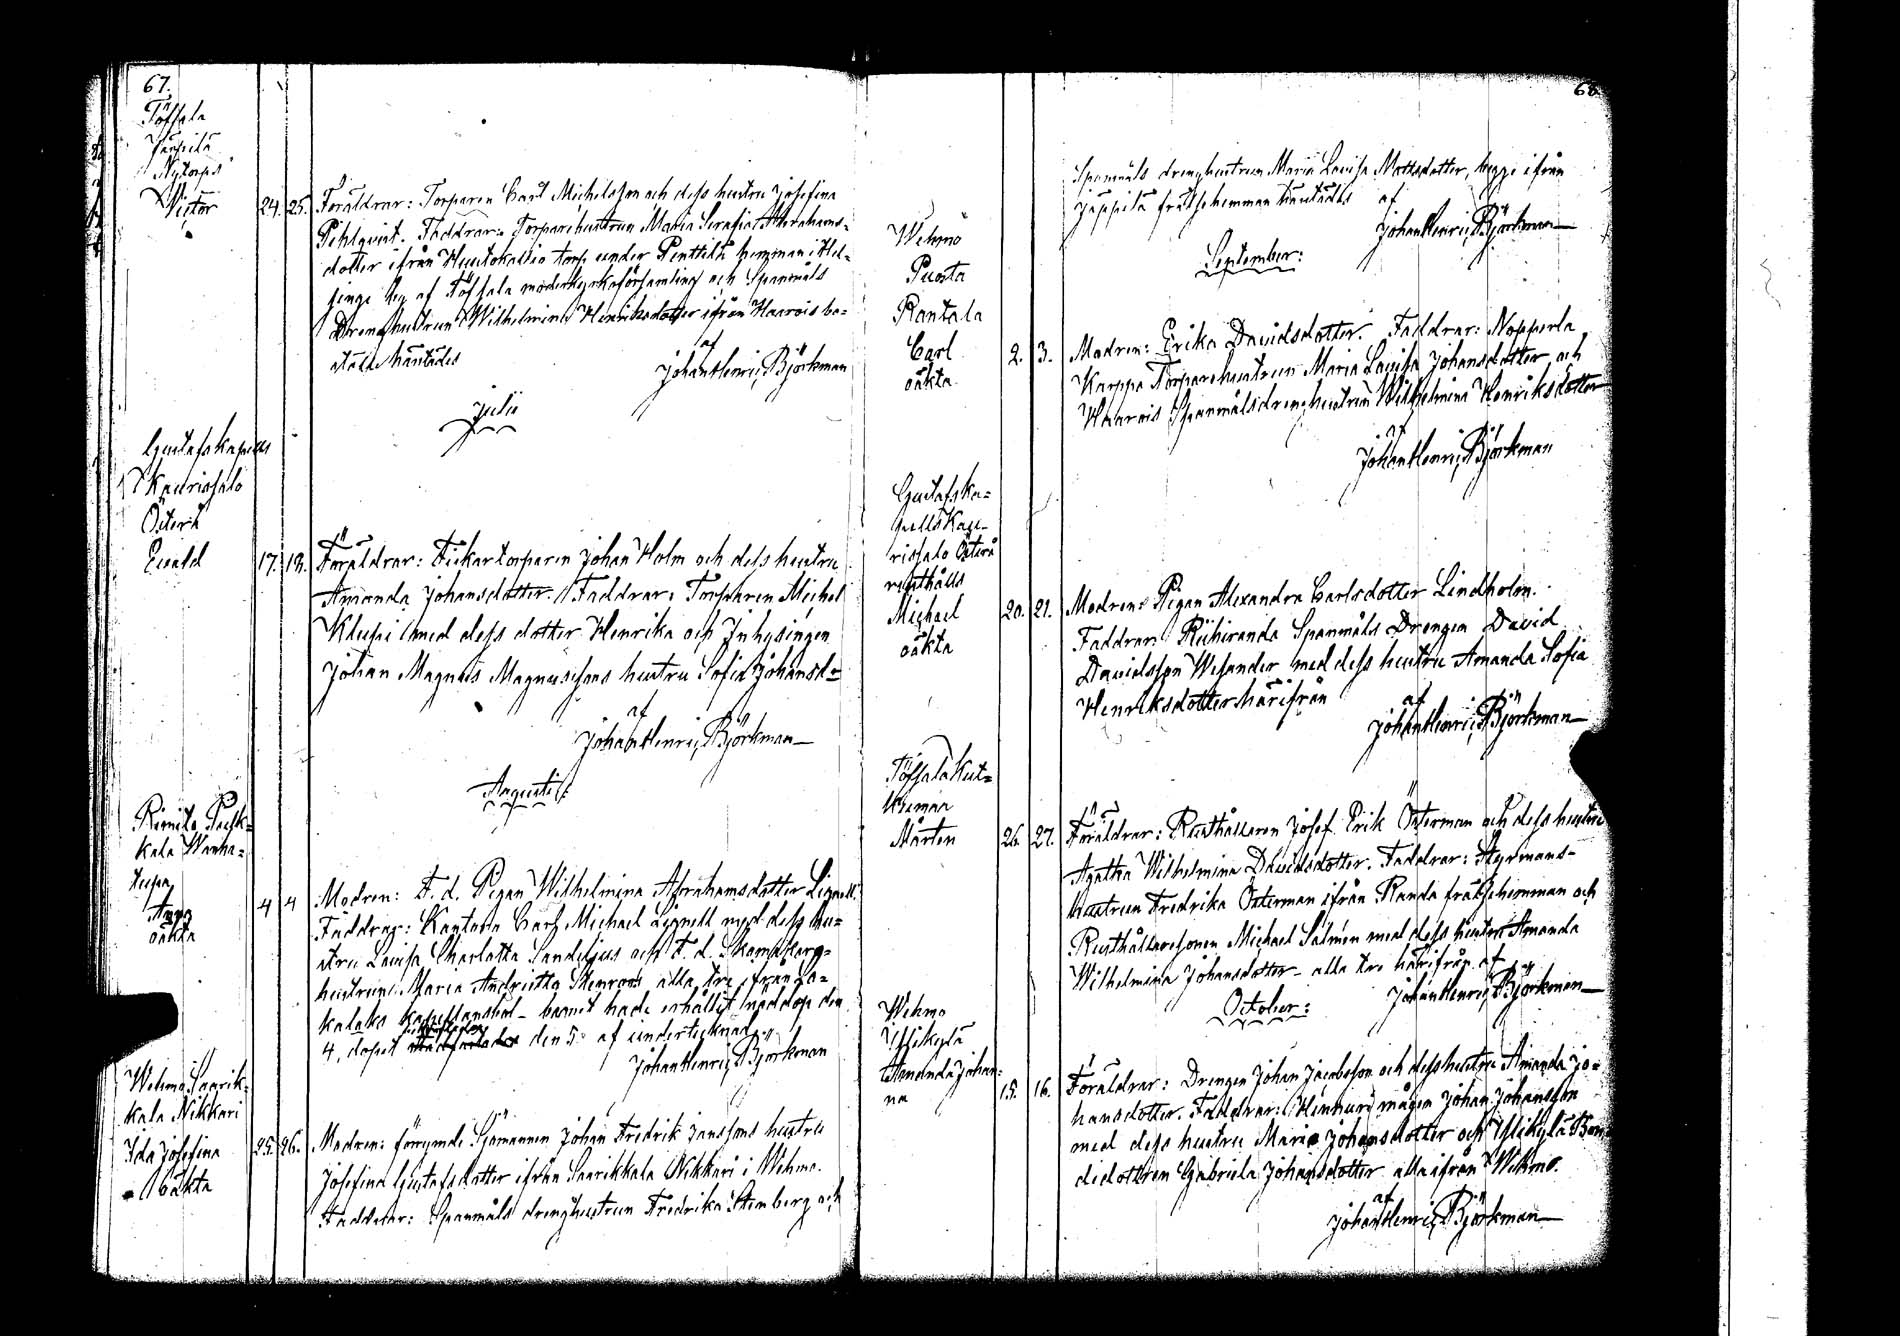 67.
Töfsala
Jäppilä
Nytorps
Victor
24. 25. Föräldrar: Torparen Carl Michelsson och dess hustru Josefina
Pihlqvist. Faddrar: Torparehustrun Maria Serafia Abrahams-
dotter ifrån Huutokallio torp under Penttilä hemman i Hel-
singe by af Töfsala moderkyrkoförsamling och Spanmåls
Drenghustrun Wilhelmina Henriksdotter ifrån Haarois bo-
ställe häntades
af
Johan Henric Björkman
Julii
Gustafs kapells
Kaurissalo
Österå
Evald
17. 18. Föräldrar: Fiskartorparen Johan Holm och dess hustru
Amanda Johansdotter. Faddrar: Torparen Michel
Klupi med dess dotter Henrika och Inhysingen
Johan Magnus Magnussons hustru Sofia Johansd:r
af
Johan Henric Björkman
Augusti:
Rimito Pusk-
kala Wanha-
tupa
Anna
oäkta
4 4 Modren: F. d. Pigan Wilhelmina Abrahamsdotter Lignell.
Faddrar: Kantorn Carl Michael Lignell med dess hu-
stru Lovisa Charlotta Sandelius och F. d.
hustrun Maria Andrietta Stenroos alla tre från Lo-
kalaks kapellansbol - barnet hade erhållit nöddop den
4, dopet den 5 af undertecknad.
Johan Henric Björkman
Wehmo Saarik-
kala Nikkari
Ida Josefina
oäkta
25. 26. Modren: förrymde Sjömannen Johan Fredrik Janssons hustru
Josefina Gustafsdotter ifrån Saarikkala Nikkari i Wehmo.
Faddrar: Spanmåls drenghustrun Fredrika Stenberg och
68.
Spanmåls drenghustrun Maria Lovisa Mattsdotter, begge ifrån
Jäppilä frälsehemman häntades af
Johan Henric Björkman
September:
Wehmo
Puosta
Rantala
Carl
oäkta
2. 3. Modren: Erika Davidsdotter. Faddrar: Nopperla
Karppa Torparehustrun Maria Lovisa Johansdotter och
Haarois Spanmålsdrenghustrun Wilhelmina Henriksdotter
af
Johan Henric Björkman
Gustafs ka-
pells Kau-
rissalo Österå
rusthålls
Michael
oäkta
20. 21. Modren: Pigan Alexandra Carlsdotter Lindholm.
Faddrar: Riihiranda Spanmåls Drengen David
Davidsson Wesander med dess hustru Amanda Sofia
Henriksdotter härifrån
af
Johan Henric Björkman
Töfsala Kut-
kumaa
Mårten
26. 27. Föräldrar: Rusthållaren Josef Erik Österman och dess hustru
Agatha Wilhelmina Davidsdotter. Faddrar: Styrmans-
hustrun Fredrika Österman ifrån Randa frälsehemman och
Rusthållaresonen Michael Salmén med dess hustru Amanda
Wilhelmina Johansdotter - alla tre härifrån af
Johan Henric Björkman
October:
Wehmo
Ussikylä
Amanda Johan-
na
15. 16. Föräldrar: Drengen Johan Jacobsson och dess hustru Amanda Jo-
hansdotter. Faddrar: mågen Johan Johansson
med dess hustru Maria Johansdotter och Ussikylä Bon-
dedottren Gabriela Johansdotter alla ifrån Wehmo.
af
Johan Henric Björkman